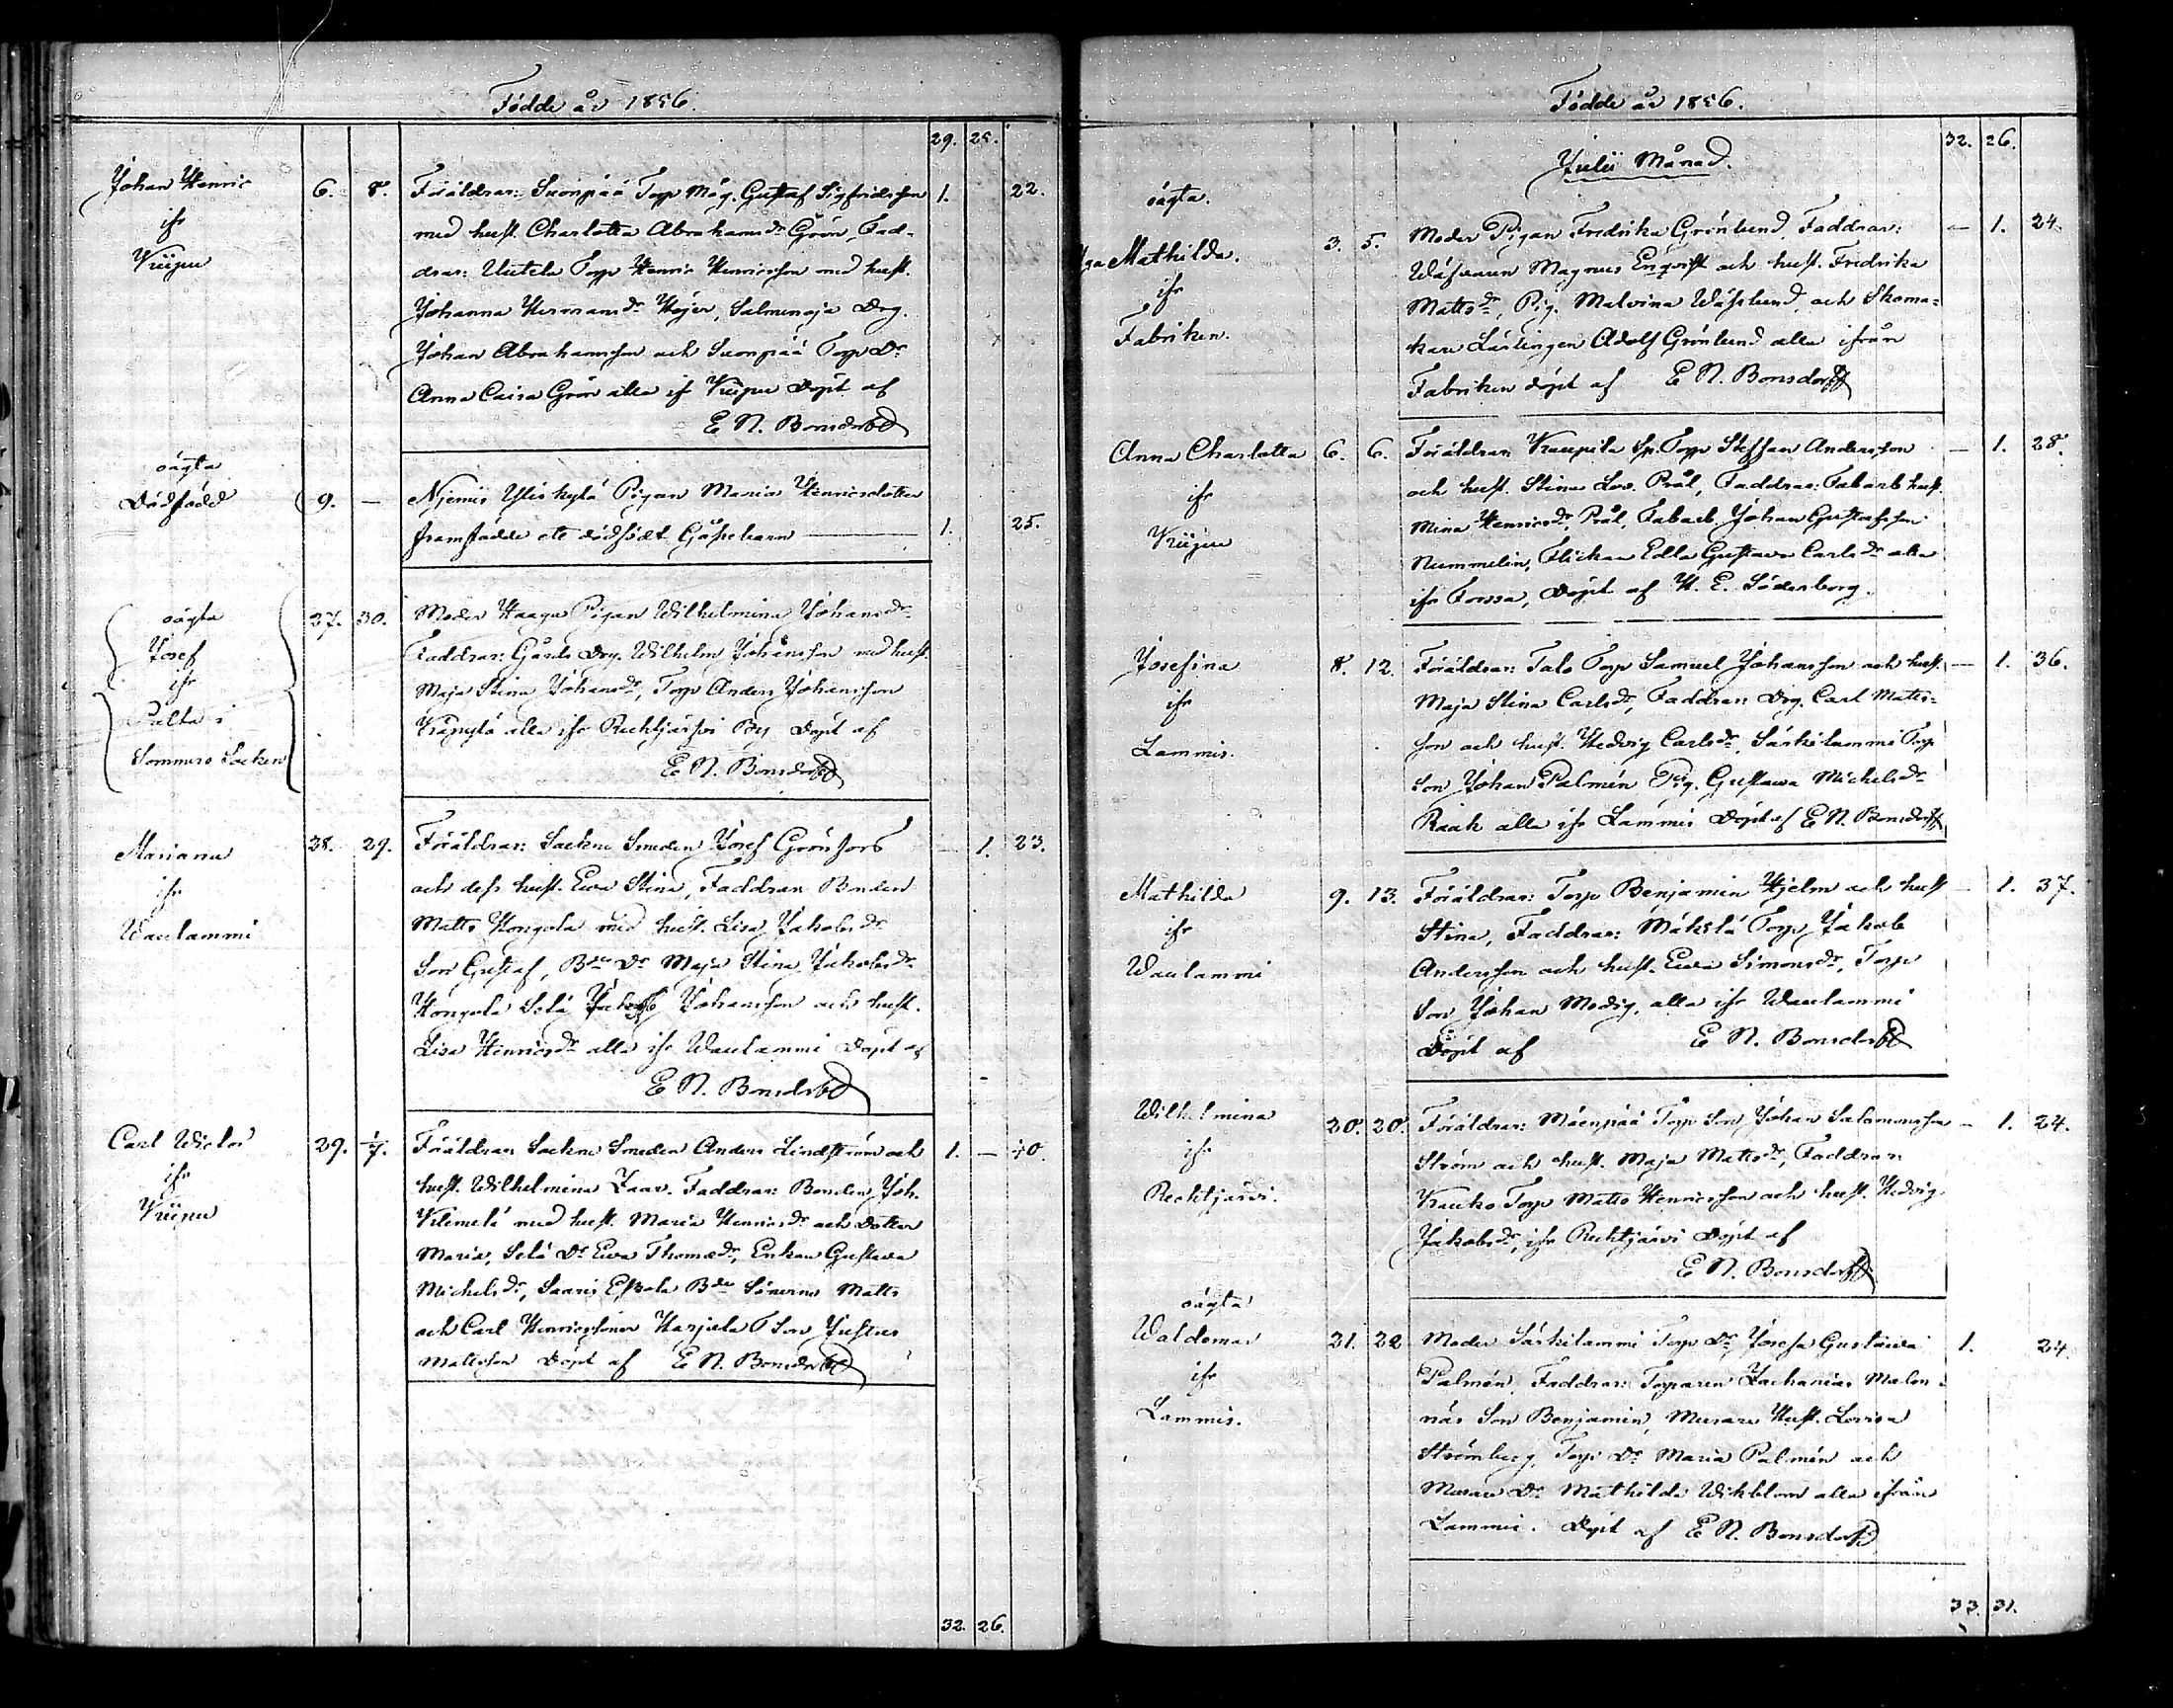 Födde år 1856.
29. 25.
Johan Henric 6. 8. Föräldrar: Suonpää Torp Måg. Gustaf Sigfridsson 1. 22.
ifr med hust. Charlotta Abrahamsdr Grön, Fad-
Viiju drar: Uutela Torp Henric Henricsson med hust.
Johanna Hermansdr Höjer, Salmenoja Drg.
Johan Abrahamsson och Suonpää Torp Dr
Anna Caisa Grön alla if Döpt af
E N. Bonsdorff
oägta
Dödfödd 9. — Njemis Yliskylä Pigan Maria Henricsdotter
framfödde ett dödfödt Gåssebarn 1. 25.
oägta 27. 30. Moder Haaga Pigan Wilhelmina Johansdr
Josef Faddrar: Gårds Drg. Wilhelm Johansson med hust.
ifr Maja Stina Johansdr, Torp Anders Johansson
Palta i alla ifr Rechtjärfvi By Döpt af
Sommero Socken E N. Bonsdorff
Mariana 28. 29. Föräldrar: Sockne Smeden Josef Grönfors — 1. 23.
ifr och dess hust. Ewa Stina, Faddrar Bonden
Waulammi Matts Hongola med hust. Lisa Jakobsdr
Son Gustaf, Bde Dr Maja Stina Jakobsdr
Hongola Johansson och hust.
Lisa Henricsdr alla ifr Waulammi Döpt af
E N. Bonsdorff
Carl Wictor 29. 1/7. Föräldrar Sockne Smeden Anders Lindström och 1. — 40.
ifr hust. Wilhelmina Faddrar: Bonden Joh.
med hust. Maria Henricsdr och dotter
Maria, Dr Ewa Thomædr, Enkan Gustava
Michelsdr, Saaris Eskola Bde Sönerne Matts
och Carl Henricssöner Harjula T Son Justus
Mattsson Döpt af E N. Bonsdorff
32. 26.
Födde år 1856.
32. 26.
Julii Månad.
oägta.
Mathilda. 3. 5. Moder Pigan Fredrika Grönlund, Faddrar: — 1. 24.
ifr Magnus Enqvist och hust. Fredrika
Fabriken. Mattsdr, Pig. Malvina Wäslund, och Skoma-
kare Lärlingen Adolf Grönlund alla ifrån
Fabriken döpt af E N. Bonsdorff
Anna Charlotta 6. 6. Föräldrar: Sp. Torp Steffan Andersson — 1. 28.
ifr och hust. Stina Lov. Prål, Faddrar: Fabarb hust.
Mina Henricsdr Prål, Fabarb. Johan Gustafsson
Nummelin, Flickan Edla Gustava Carlsdr alla
ifr Forssa, Döpt af H. E. Söderborg.
Josefina 8. 12. Föräldrar: Talo Torp Samuel Johansson och hust. — 1. 36.
ifr Maja Stina Carlsdr, Faddrar: Drg. Carl Matts-
Lammis. son och hust. Hedvig Carlsdr, Särkilammi Torp
Son Johan Palmén Pig. Gustava Michelsdr
Raak alla ifr Lammis Döpt af E N. Bonsdorff
Mathilda 9. 13. Föräldrar: Torp Benjamin Hjelm och hust — 1. 37.
ifr Stina, Faddrar: Mäkelä Torp Jakob
Waulammi Andersson och hust. Ewa Simonsdr, Torp
Son Johan Modig, alla ifr Waulammi
Döpt af E N. Bonsdorff
Wilhelmina 20. 20. Föräldrar: Mäenpää Torp Son Johan Salomonsson — 1. 24.
ifr Ström och hust. Maja Mattsdr, Faddrar:
Rechtjärvi. Kauko Torp Matts Henricsson och hust. Hedvig
Jakobsdr, ifr Rechtjärvi Döpt af
E N. Bonsdorff
oägta
Waldemar 21. 22 Moder Särkilammi Torp Dr Josefa Gustava 1. 24.
ifr Palmén, Faddrar: Torparen Zacharias Malon-
Lammis. näs Son Benjamin, Murare Hust. Lovisa
Strömberg, Torp Dr Maria Palmén och
Murare Dr Mathilda Wikblom alla ifrån
Lammis. Döpt af E N. Bonsdorff
33. 31.